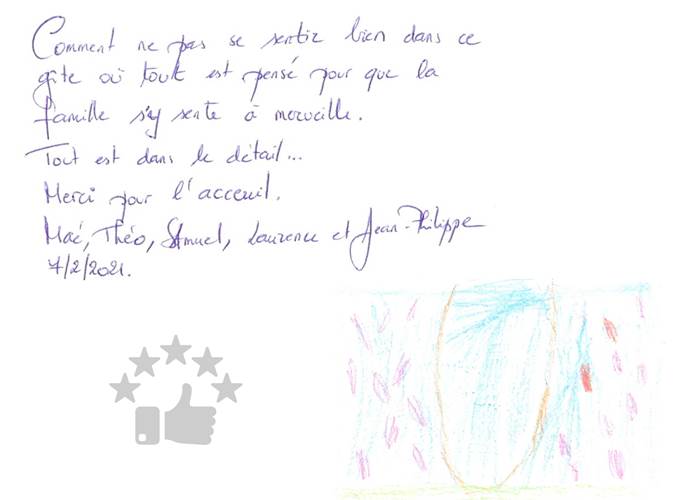 Comment ne pas se sentir bien dans ce
gîte où tout est pensé pour que la
famille s'y sente à merveille.
Tout est dans le détail...
Merci pour l'acceuil.
Maé, Théo, Samuel, Laurence et Jean-Philippe
7/2/2021.